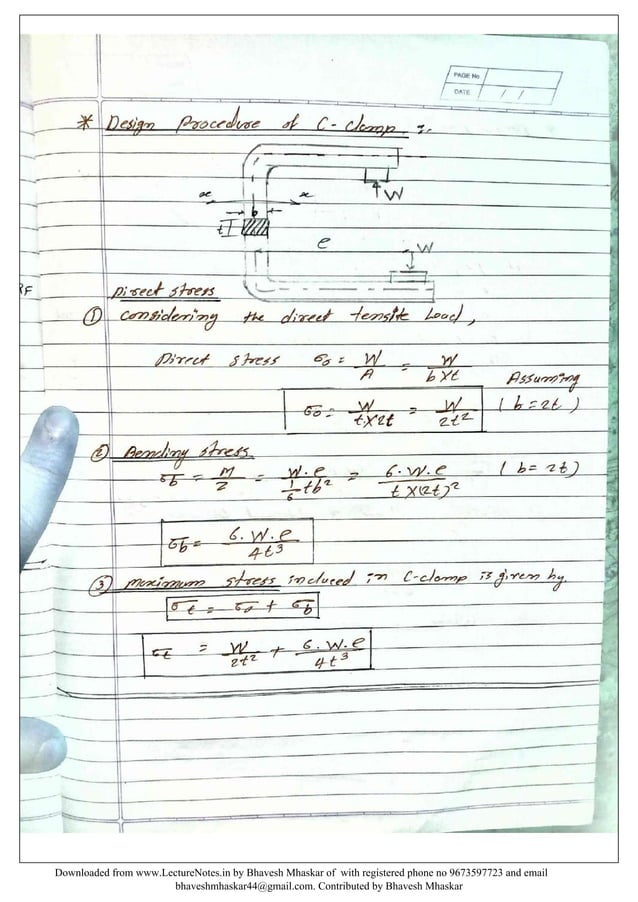 PAGE No
DATE / /
* Design Procedure of C-clamp :-
W
x x
b
t
e
W
RF
Direct stress
① Considering the direct tensile Load,
Direct stress σo = W/A = W/b×t
Assuming
σo = W/t×2t = W/2t² (b=2t)
② Bending stress
σb = M/Z = W.e/(1/6 tb²) = 6.W.e/t×(2t)² (b=2t)
σb = 6.W.e/4t³
③ Maximum stress included in C-clamp is given by
σt = σo + σb
σt = W/2t² + 6.W.e/4t³
Downloaded from www.LectureNotes.in by Bhavesh Mhaskar of with registered phone no 9673597723 and email
bhaveshmhaskar44@gmail.com. Contributed by Bhavesh Mhaskar